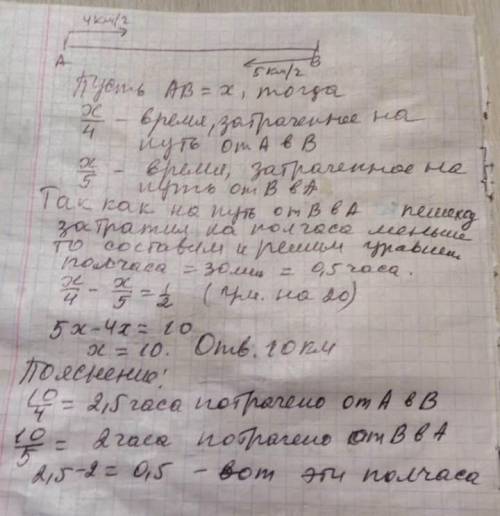 4 км/г
А В
5 км/г
Пусть АВ = х, тогда
x/4 - время, затраченное на
путь от А в В
x/5 - время, затраченное на
путь от В в А
Так как на путь от В в А пешеход
затратил на полчаса меньше
то составим и решим уравнен.
полчаса = 30 мин = 0,5 часа.
x/4 - x/5 = 1/2 (ум. на 20)
5х-4х = 10
х = 10. Отв. 10 км
Пояснение!
10/4 = 2,5 часа потрачено от А в В
10/5 = 2 часа потрачено от В в А
2,5-2 = 0,5 - вот эти полчаса